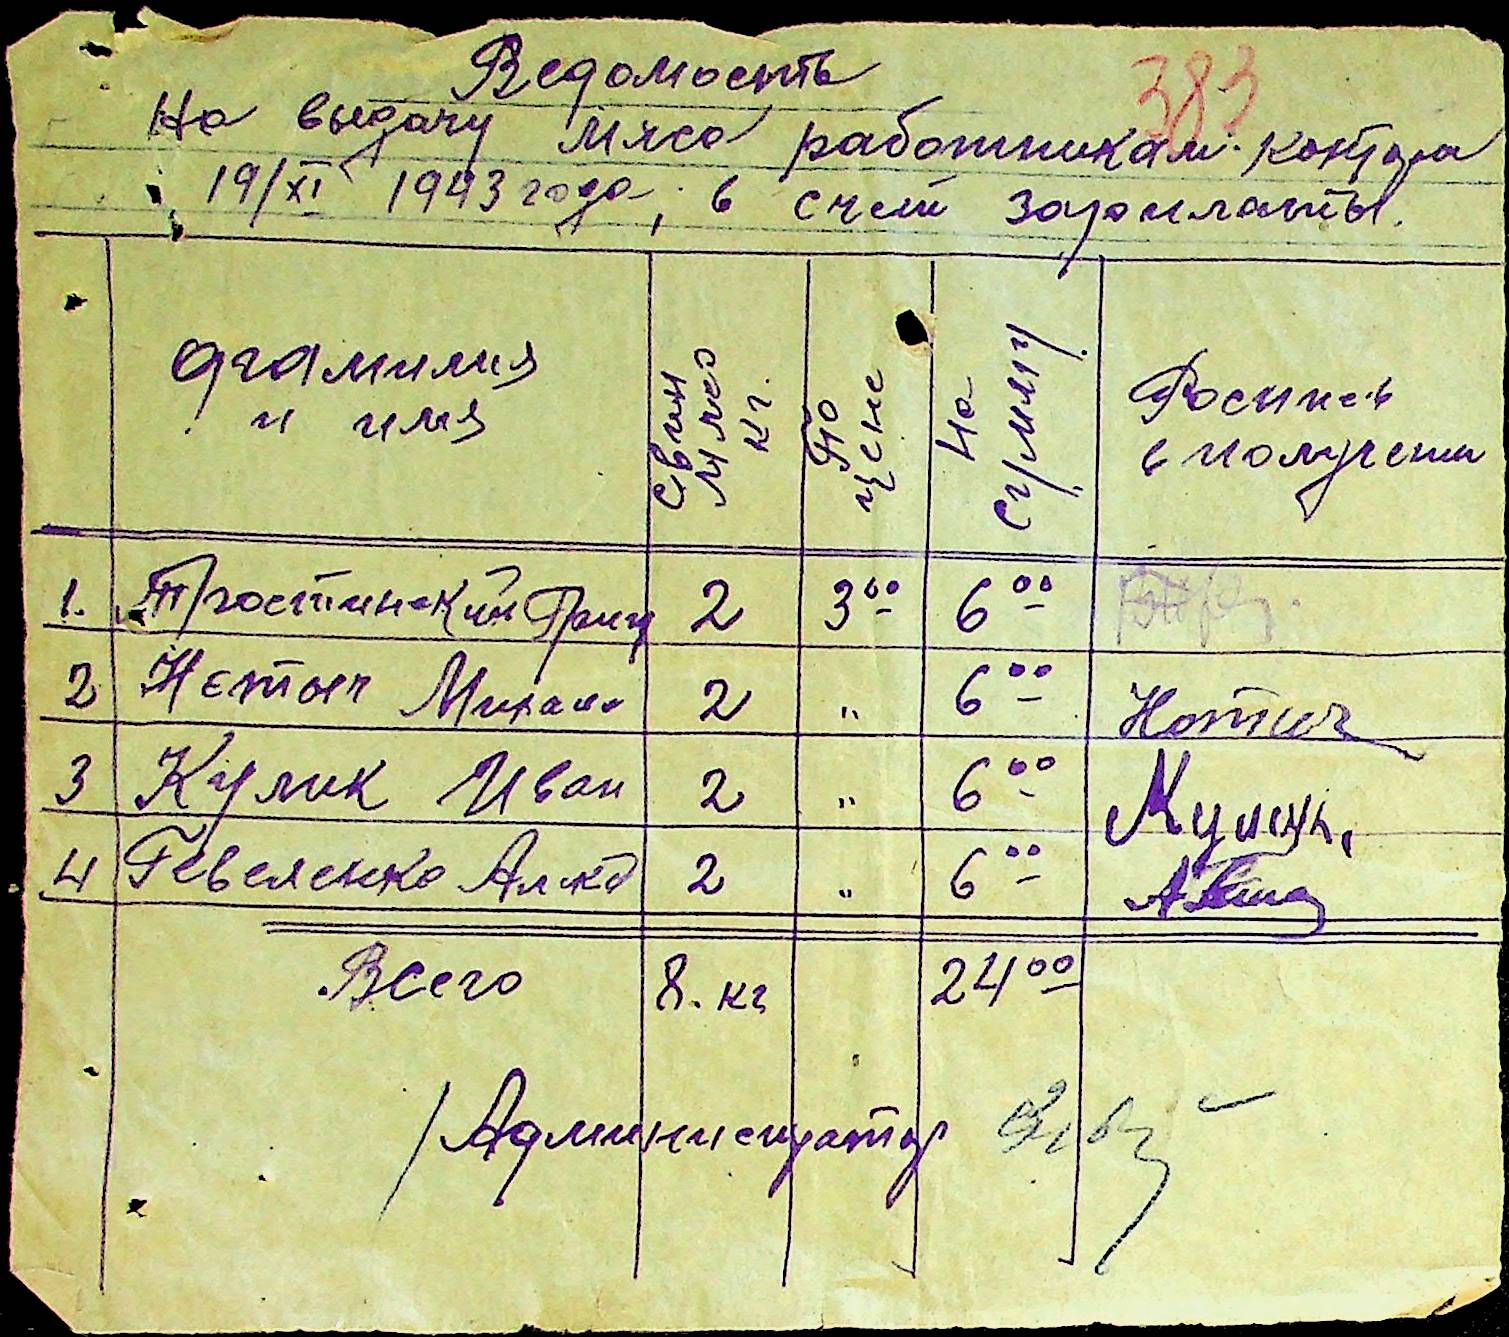 Ведомость
383
На выдачу мяса работникам контора
19/XI 1943 года, в счет зарплаты.
Фамилия и имя Свин мясо кг. По цене На сумму Роспись в получении
1. Тростинский Григ 2 3 00 6 00
2 Нетыч Михаил 2 " 6 00 Нотич
3 Кулик Иван 2 " 6 00 Кулик
4 Гевеленко Алкд 2 " 6 00
Всего 8. кг 24 00
/ Администратор